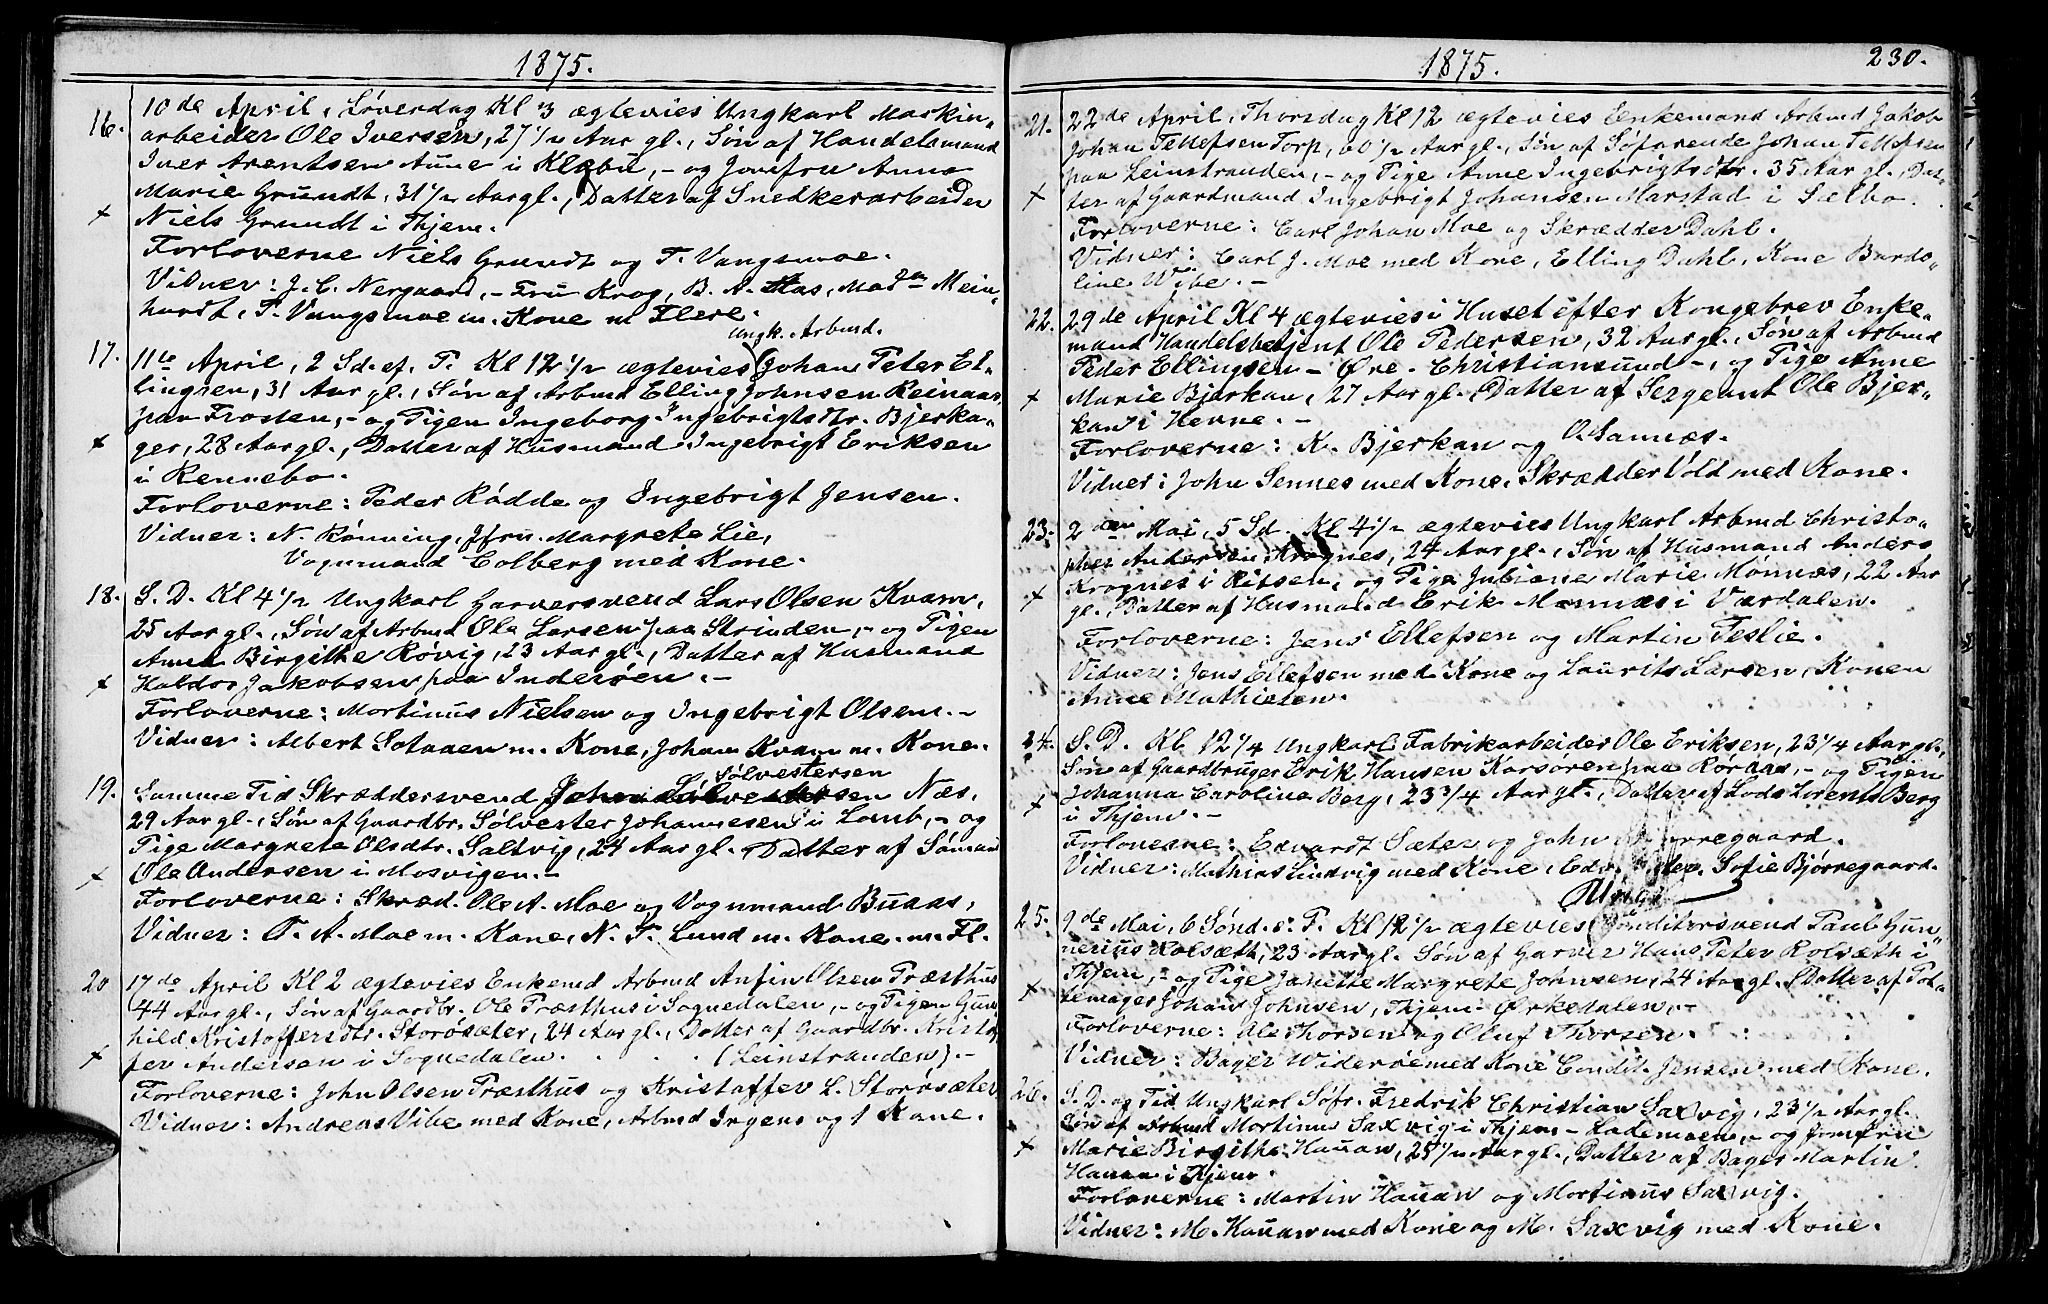 1875.
16. 10de April, Løverdag Kl 3 ægtevies Ungkarl Maskin„
arbeider Ole Iversen, 27 1/2 Aar gl., Søn af Handelsmand
Iver Arentsen Aune i Klæbu, – og Jomfru Anna
Marie Grundt, 31 1/2 Aar gl., Datter af Snedkerarbeider
+ Niels Grundt i Thjem.
Forloverne Niels Grundt og T. Vangsmoe.
Vidner: J. C. Nergaard, – Fru Krog, B. A. Aas, Madam Mein„
hardt, T. Vangsmoe m. Kone m Flere.
Ungk. Arbmd.
17. 11te April, 2 Sd. ef. P. Kl 12 1/2 ægtevies Johan Peter El„
lingsen, 31 Aar gl., Søn af Arbmd Elling Johnsen Reinaas
paa Frosten, – og Pigen Ingeborg Ingebrigtsdtr. Bjerka„
+ ger, 28 Aar gl., Datter af Husmand Ingebrigt Eriksen
i Rennebo.
Forloverne: Peder Rødde og Ingebrigt Jensen.
Vidner: N. Rønning, Jfru. Margrete Lie,
Vognmand Colberg med Kone.
18. S. D. Kl 4 1/2 Ungkarl Garversvend Lars Olsen Kvam,
25 Aar gl., Søn af Arbmd Ole Larsen paa Strinden, – og Pigen
Anna Birgithe Røvig, 23 Aar gl., Datter af Husmand
+ Haldor Jakobsen paa Inderøen. –
Forloverne: Mortinus Nielsen og Ingebrigt Olsen. –
Vidner: Albert Solaaen m. Kone, Johan Kvam m. Kone.
Sølvestersen
19. Samme Tid Skræddersvend Johan Sølvestersen Næs,
29 Aar gl., Søn af Gaardbr. Sølvester Johannesen i Lomb, – og
Pige Margrete Olsdtr. Saltvig, 24 Aar gl., Datter af Sømand
+ Ole Andersen i Mosvigen. –
Forloverne: Skræd. Ole A. Moe og Vognmand Buaas,
Vidner: O. A. Moe m. Kone, N. P. Lund m. Kone. m. Fl.
20 17de April Kl 2 ægtevies Enkemd Arbmd Anfin Olsen Præsthus
44 Aar gl., Søn af Gaardbr. Ole Præsthus i Sognedalen, – og Pigen Gun„
hild Kristoffersdtr. Storøsæter, 24 Aar gl., Datter af Gaardbr. Kristof
+ fer Andersen i Sognedalen. (Leinstranden). –
Forloverne: John Olsen Præsthus og Kristoffer L. Storøsæter
Vidner: Andreas Vibe med Kone, Arbmd Irgens og 1 Kone.
1875. 230.
21. 22de April, Thorsdag Kl 12 ægtevies Enkemand Arbmd Jakob
Johan Tellefsen Torp, 60 1/2 Aar gl., Søn af Søfarende Johan Tellefsen
paa Leinstranden, – og Pige Anne Ingebrigtsdtr. 35 Aar gl., Dat„
+ ter af Gaardmand Ingebrigt Johansen Marstad i Sælbo.
Forloverne: Carl Johan Moe og Skrædder Dahl.
Vidner: Carl J. Moe med Kone, Elling Dahl, Kone Bardo„
line Wibe. –
22. 29de April Kl 4 ægtevies i Huset efter Kongebrev Enke„
mand Handelsbetjent Ole Pedersen, 32 Aar gl., Søn af Arbmd
Peder Ellingsen – Øre – Christiansund –, og Pige Anne
+ Marie Bjerkan, 27 Aar gl., Datter af Sergeant Ole Bjer„
kan i Hevne. –
Forloverne: K. Bjerkan og O. Sannæs.
Vidner: John Sennes med Kone, Skrædder Vold med Kone.
23. 2den Mai, 5 Sd. Kl 4 1/2 ægtevies Ungkarl Arbmd Christo„
pher Andersen Krognes, 24 Aar gl., Søn af Husmand Anders
+ Krognes i Ritsen, og Pige Juliane Marie Monnæs, 22 Aar
gl., Datter af Husmand Erik Monnæs i Værdalen.
Forloverne: Jens Ellefsen og Martin Feslie.
Vidner: Jens Ellefsen med Kone og Laurits Larsen, Konen
Anne Mathiesen.
24. S. D. Kl 12 1/4 Ungkarl Fabrikarbeider Ole Eriksen, 23 1/4 Aar gl.,
Søn af Gaardbruger Erik Hansen Korsøren paa Røraas, – og Pigen
+ Johanna Carolina Berg, 23 3/4 Aar gl., Datter af Lods Lorents Berg
i Thjem. –
Forloverne: Edvardt Sæter og John Bjørregaard.
Vidner: Mathias Lindvig med Kone, Edv. Sæter, Sofie Bjørregaard.
Ungk.
25. 9de Mai, 6 Sønd. e. P. Kl 12 1/2 ægtevies Conditorsvend Paul Gun„
nerius Rolsæth, 23 Aar gl. Søn af Garver Hans Peter Rolsæth i
Thjem, – og Pige Janette Margrete Johnsen, 24 Aar gl., Datter af Pot„
+ temager Johan Johnsen, Thjem – Ørkedalen. –
Forloverne: Ole Thorsen og Oluf Thorsen.
Vidner: Bager Widerøe med Kone Condit. Jensen med Kone.
26. S. D. og Tid Ungkarl Søfr. Fredrik Christian Saxvig, 23 1/2 Aar gl.
Søn af Arbmd Mortinus Saxvig i Thjem – Lademoen, – og Jomfru
+ Marie Birgitha Hauan, 25 1/2 Aar gl., Datter af Bager Martin
Hauan i Thjem.
Forloverne: Martin Hauan og Mortinus Saxvig.
Vidner: M. Hauan med Kone og M. Saxvig med Kone.